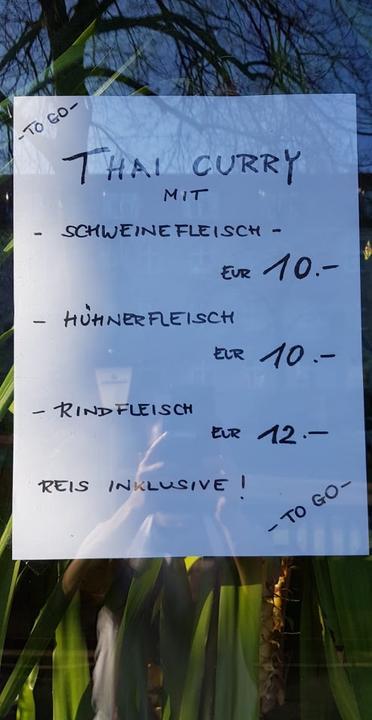 -TO GO-
THAI CURRY
MIT
- SCHWEINEFLEISCH -
EUR 10.-
- HÜHNERFLEISCH
EUR 10.-
- RINDFLEISCH
EUR 12.-
REIS INKLUSIVE!
-TO GO-